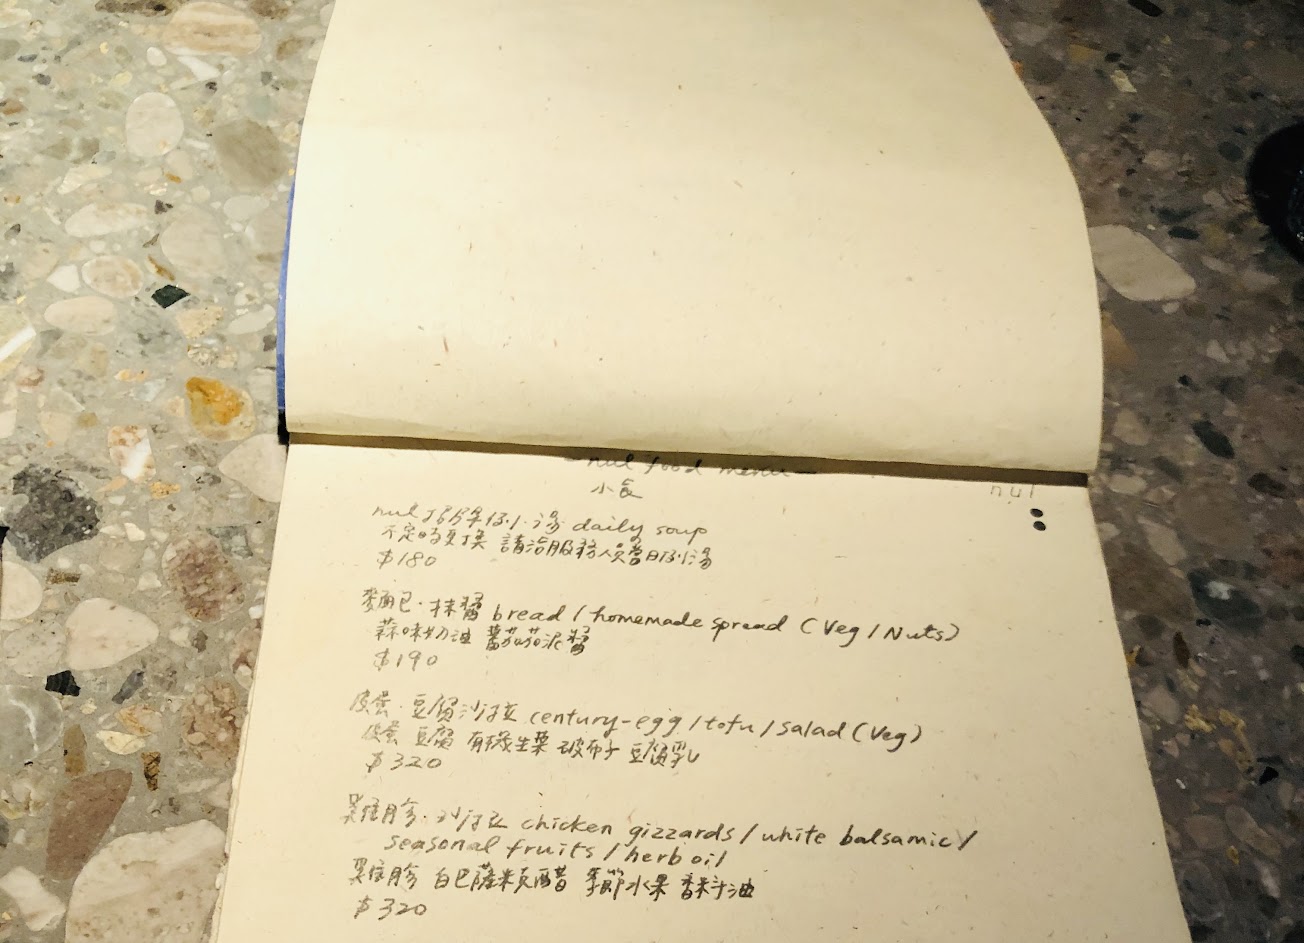 - nul food menu -
小食
nul
nul 巧房例小湯 daily soup
不定時更換 請洽服務人員當日例湯
$180
麵包·抹醬 bread / homemade spread (Veg / Nuts)
蒜味奶油 蕃茄茄泥醬
$190
皮蛋·豆腐沙拉 century-egg / tofu / salad (Veg)
皮蛋 豆腐 有機生菜 破布子 豆腐乳
$320
雞胗·沙拉 chicken gizzards / white balsamic /
seasonal fruits / herb oil
雞胗 白巴薩米克醋 季節水果 香料油
$320